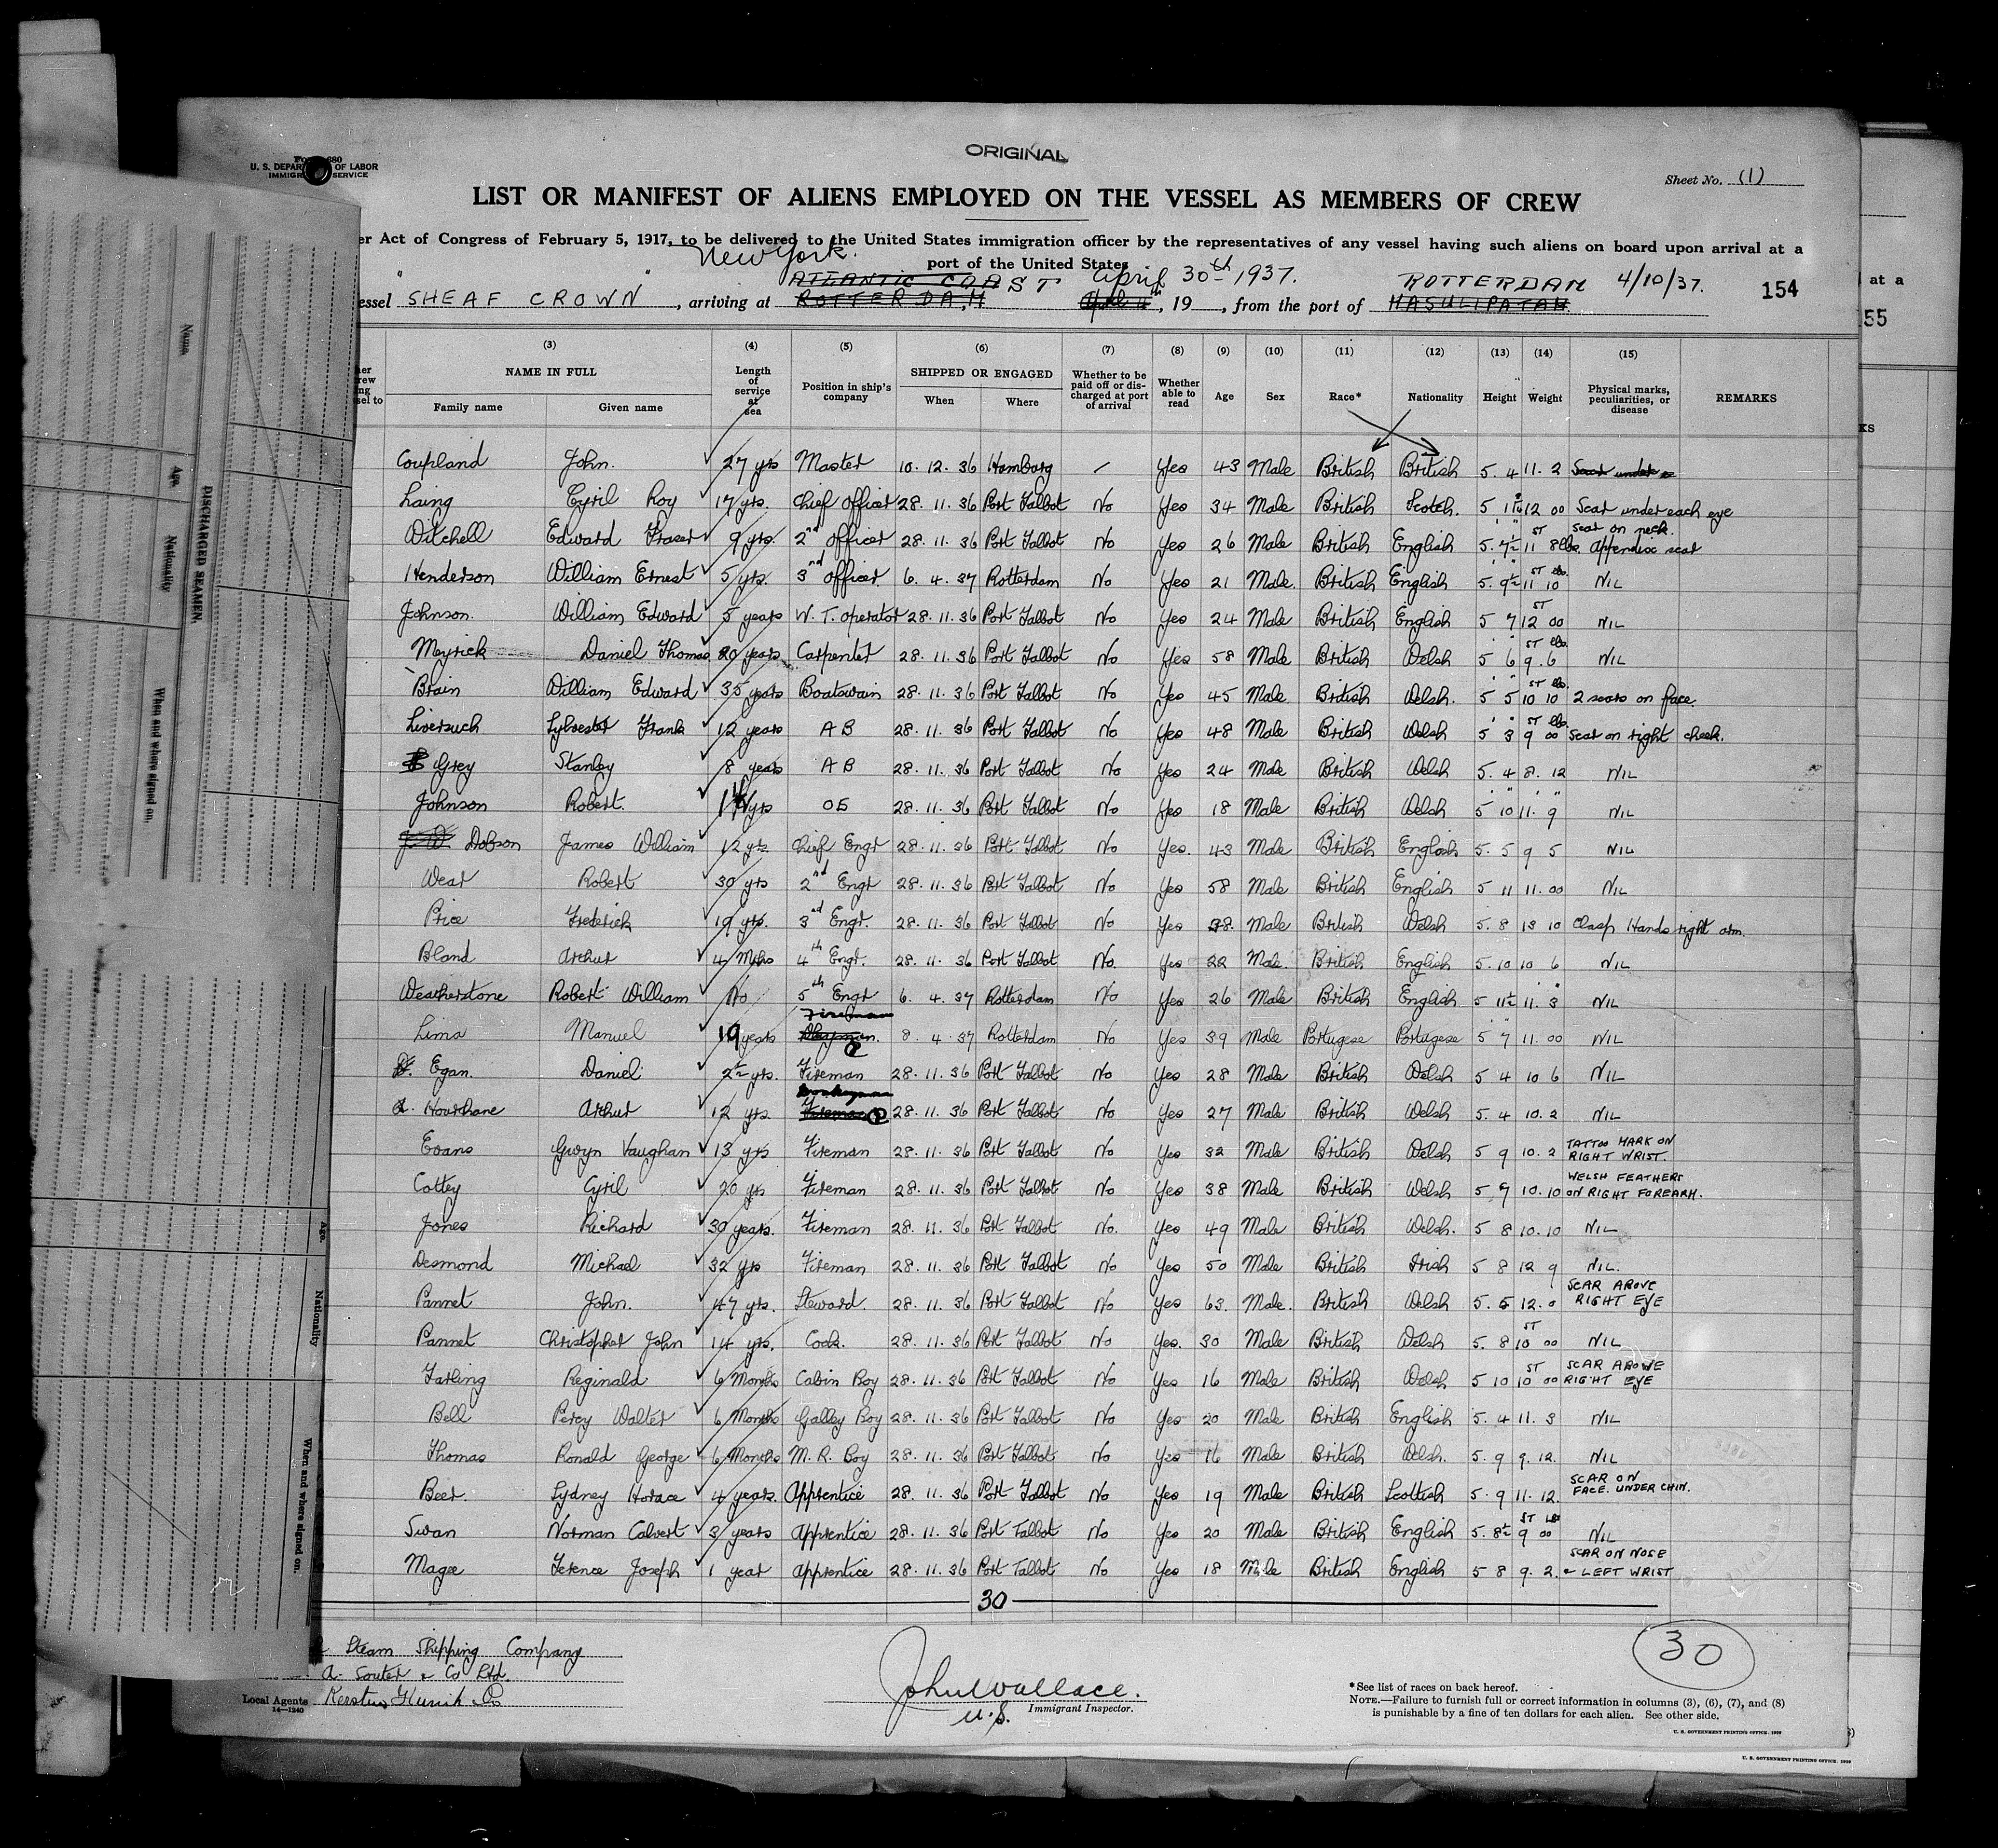 ORIGINAL
U. S. DEPAR OF LABOR
IMMIGR SERVICE
Sheet No. (1)
LIST OR MANIFEST OF ALIENS EMPLOYED ON THE VESSEL AS MEMBERS OF CREW
er Act of Congress of February 5, 1917, to be delivered to the United States immigration officer by the representatives of any vessel having such aliens on board upon arrival at a
port of the United States
New York.
ATLANTIC COAST April 30th 1937. ROTTERDAM 4/10/37.
essel SHEAF CROWN, arriving at ROTTERDAM, 19, from the port of MASULIPATAM. 154
(3) (4) (5) (6) (7) (8) (9) (10) (11) (12) (13) (14) (15)
NAME IN FULL Length of service at sea Position in ship's company SHIPPED OR ENGAGED Whether to be paid off or discharged at port of arrival Whether able to read Age Sex Race* Nationality Height Weight Physical marks, peculiarities, or disease REMARKS
Family name Given name When Where
Coupland John. 27 yrs Master 10. 12. 36 Hamburg / Yes 43 Male British British 5. 4 11. 2 Scar under
Laing Cyril Roy 17 yrs. Chief Officer 28. 11. 36 Port Talbot No Yes 34 Male British Scotch. 5 12 00 Scar under each eye
Witchell Edward Fraser 9 yrs. 2nd Officer 28. 11. 36 Port Talbot No Yes 26 Male British English 5. 7½ 11 ST 8 lbs. Scar on neck. Appendix scar
Henderson William Ernest 5 yrs. 3rd Officer 6. 4. 37 Rotterdam No Yes 21 Male. British English 5. 9½ 11 ST 10 lbs. NIL
Johnson. William Edward 5 years W. T. operator 28. 11. 36 Port Talbot No Yes 24 Male British English 5 7 12 ST 00 NIL
Meyrick Daniel Thomas 20 years Carpenter 28. 11. 36 Port Talbot No Yes 58 Male British Welsh 5 6 9 ST. 6 lbs. NIL
Brain William Edward 35 years Boatswain 28. 11. 36 Port Talbot No Yes 45 Male. British Welsh. 5 5 10 ST 10 lbs. 2 scars on face
Liversuch Sylvester Frank 12 years A B 28. 11. 36 Port Talbot No Yes 48 Male British Welsh 5 3 9 ST 00 lbs. Scar on right cheek.
Grey Stanley 8 years A B 28. 11. 36 Port Talbot No Yes 24 Male British Welsh 5. 4 8. 12 NIL
Johnson Robert. yrs OS 28. 11. 36 Port Talbot No Yes 18 Male British Welsh 5 10 11. 9 NIL
J. W. Dobson James William 12 yrs Chief Engr 28. 11. 36 Port Talbot No Yes. 43 Male British English 5. 5 9 5 NIL
Wear Robert 30 yrs 2nd Engr 28. 11. 36 Port Talbot No Yes 58 Male British English 5 11 11. 00 NIL
Price Frederick 19 yrs. 3rd Engr. 28. 11. 36 Port Talbot No Yes 38. Male British Welsh 5. 8 13 10 Clasp Hands right arm.
Bland Arthur 4 Mths 4th Engr. 28. 11. 36 Port Talbot No. Yes 22 Male. British English 5. 10 10 6 NIL
Weatherstone Robert William No 5th Engr 6. 4. 37 Rotterdam No Yes 26 Male British English 5 11½ 11. 3 NIL
Lima Manuel 19 years Fireman 8. 4. 37 Rotterdam No Yes 39 Male Portugese Portugese 5 7 11. 00 NIL
Egan. Daniel 2½ yrs. Fireman 28. 11. 36 Port Talbot No Yes 28 Male British Welsh 5 4 10 6 NIL
Hourhane Arthur 12 yrs. Donkeyman Fireman 28. 11. 36 Port Talbot No Yes 27 Male British Welsh 5. 4 10. 2 NIL
Evans Gwyn Vaughan 13 yrs Fireman 28. 11. 36 Port Talbot No Yes 32 Male British Welsh 5 9 10. 2 TATTOO MARK ON RIGHT WRIST.
Cottey Cyril 20 yrs Fireman 28. 11. 36 Port Talbot No Yes 38 Male British Welsh 5 9 10. 10 WELSH FEATHERS ON RIGHT FOREARM.
Jones Richard 30 years. Fireman 28. 11. 36 Port Talbot No. Yes 49 Male British Welsh. 5 8 10. 10 NIL
Desmond Michael 32 yrs Fireman 28. 11. 36 Port Talbot No Yes 50 Male British Irish 5 8 12 9 NIL.
Pannet John. 47 yrs. Steward. 28. 11. 36 Port Talbot No Yes 63. Male. British Welsh 5. 5 12. 0 SCAR ABOVE RIGHT EYE
Pannet Christopher John 14 yrs. Cook. 28. 11. 36 Port Talbot No Yes. 30 Male British Welsh 5. 8 10 ST 00 NIL
Farling Reginald 6 Months Cabin Boy 28. 11. 36 Port Talbot No Yes 16 Male British Welsh 5 10 10 ST 00 SCAR ABOVE RIGHT EYE
Bell Percy Walter 6 Months Galley Boy 28. 11. 36 Port Talbot No Yes 20 Male British English 5. 4 11. 3 NIL
Thomas Ronald George 6 Months M. R. Boy 28. 11. 36 Port Talbot No Yes 16 Male British Welsh. 5. 9 9. 12. NIL
Beer. Sydney Horace 4 years. Apprentice 28. 11. 36 Port Talbot No Yes 19 Male British Scottish 5. 9 11. 12. SCAR ON FACE. UNDER CHIN.
Swan Norman Calvert 3 years Apprentice 28. 11. 36 Port Talbot No Yes 20 Male British English 5. 8½ 9 ST 00 LBS NIL
Magee Terence Joseph 1 year Apprentice 28. 11. 36 Port Talbot No Yes 18 Male British English 5 8 9. 2. SCAR ON NOSE & LEFT WRIST
30
30
Steam Shipping Company
A. Souter & Co Ltd.
Local Agents
14—1240
John Wallace.
U.S. Immigrant Inspector.
*See list of races on back hereof.
NOTE.—Failure to furnish full or correct information in columns (3), (6), (7), and (8)
is punishable by a fine of ten dollars for each alien. See other side.
U. S. GOVERNMENT PRINTING OFFICE. 1929
U. S. GOVERNMENT PRINTING OFFICE. 1929
at a
55
KS
DISCHARGED SEAMEN
Name
Age
Nationality
When and where signed on
Age
Nationality
When and where signed on